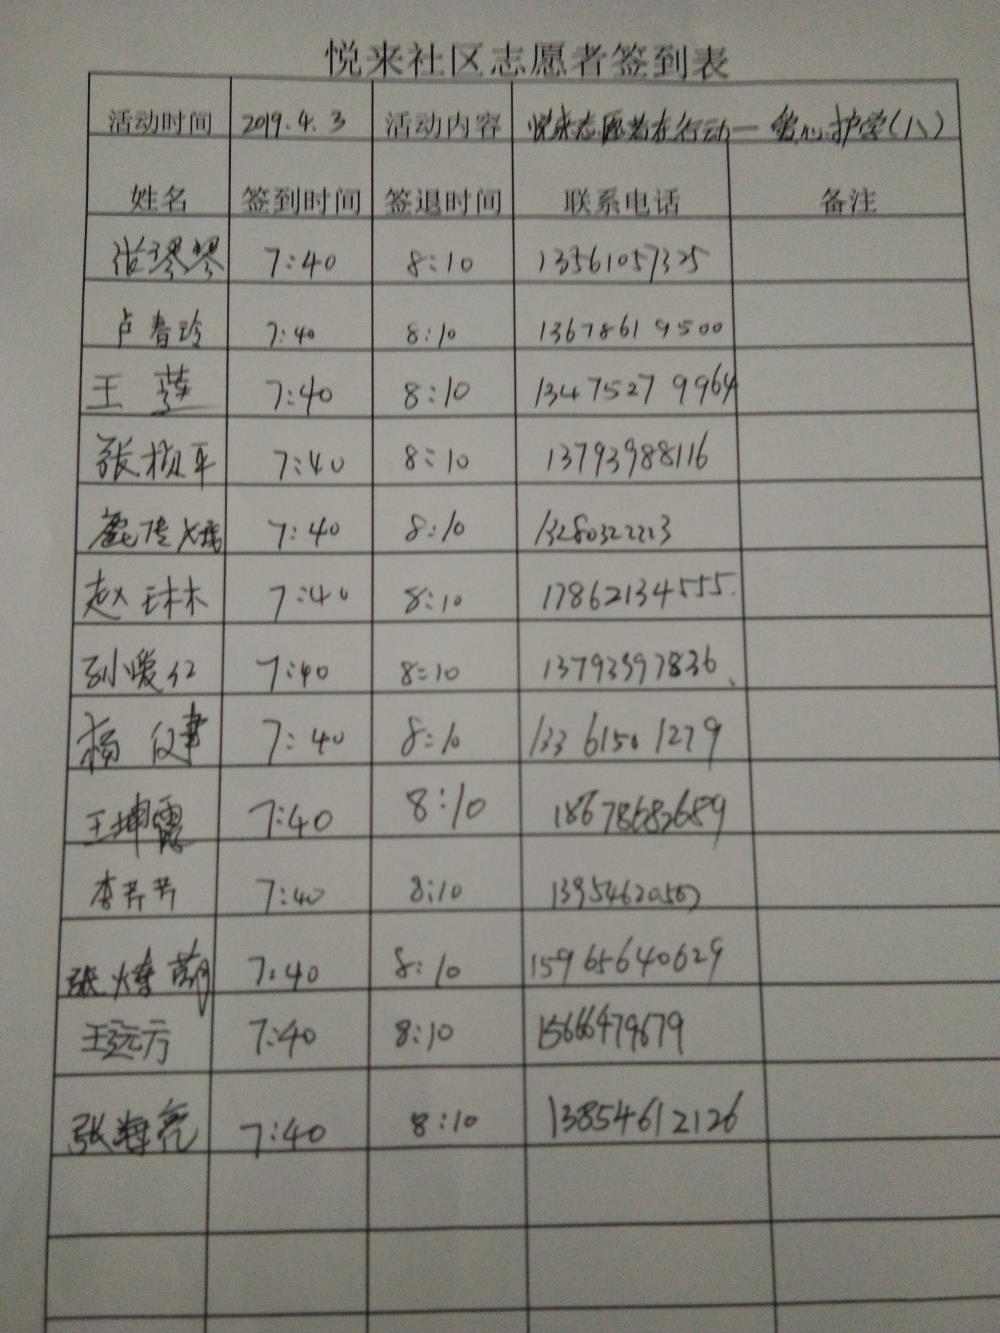 悦来社区志愿者签到表
活动时间 2019.4.3 活动内容 悦来志愿者在行动—爱心护学(八)
姓名 签到时间 签退时间 联系电话 备注
张 7:40 8:10 13561057325
卢春玲 7:40 8:10 13678619500
王莲 7:40 8:10 13475279964
张 平 7:40 8:10 13793988116
7:40 8:10 13280322223
赵琳 7:40 8:10 17862134555
孙爱红 7:40 8:10 13793597836
杨健 7:40 8:10 13361501279
王坤霞 7:40 8:10 18678682689
李芹芹 7:40 8:10
张 7:40 8:10 15965640629
王远方 7:40 8:10 15666479679
张海亮 7:40 8:10 13854612126